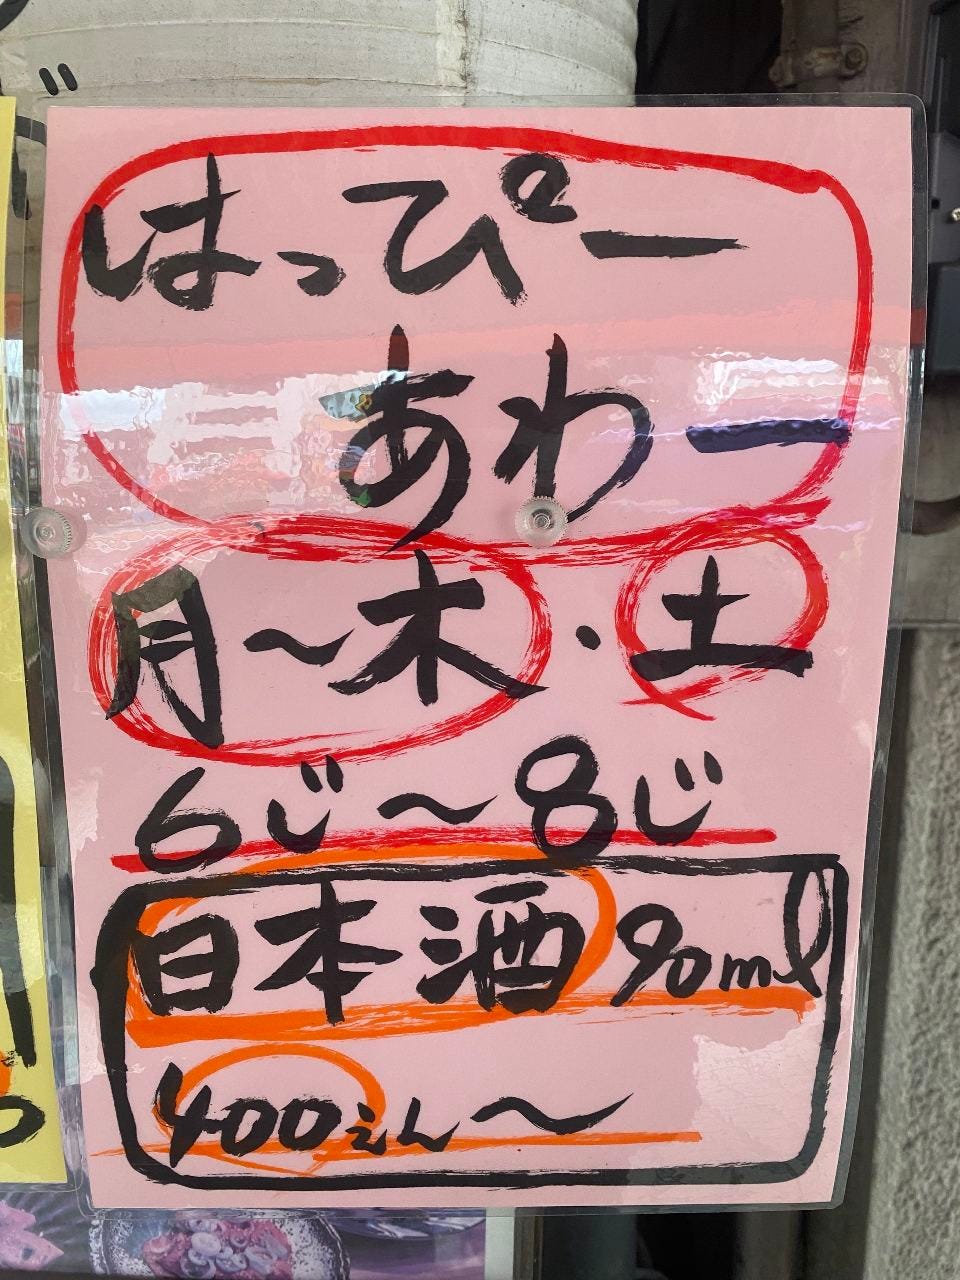 はっぴー
あわー
月～木・土
6じ～8じ
日本酒 90ml
400えん～